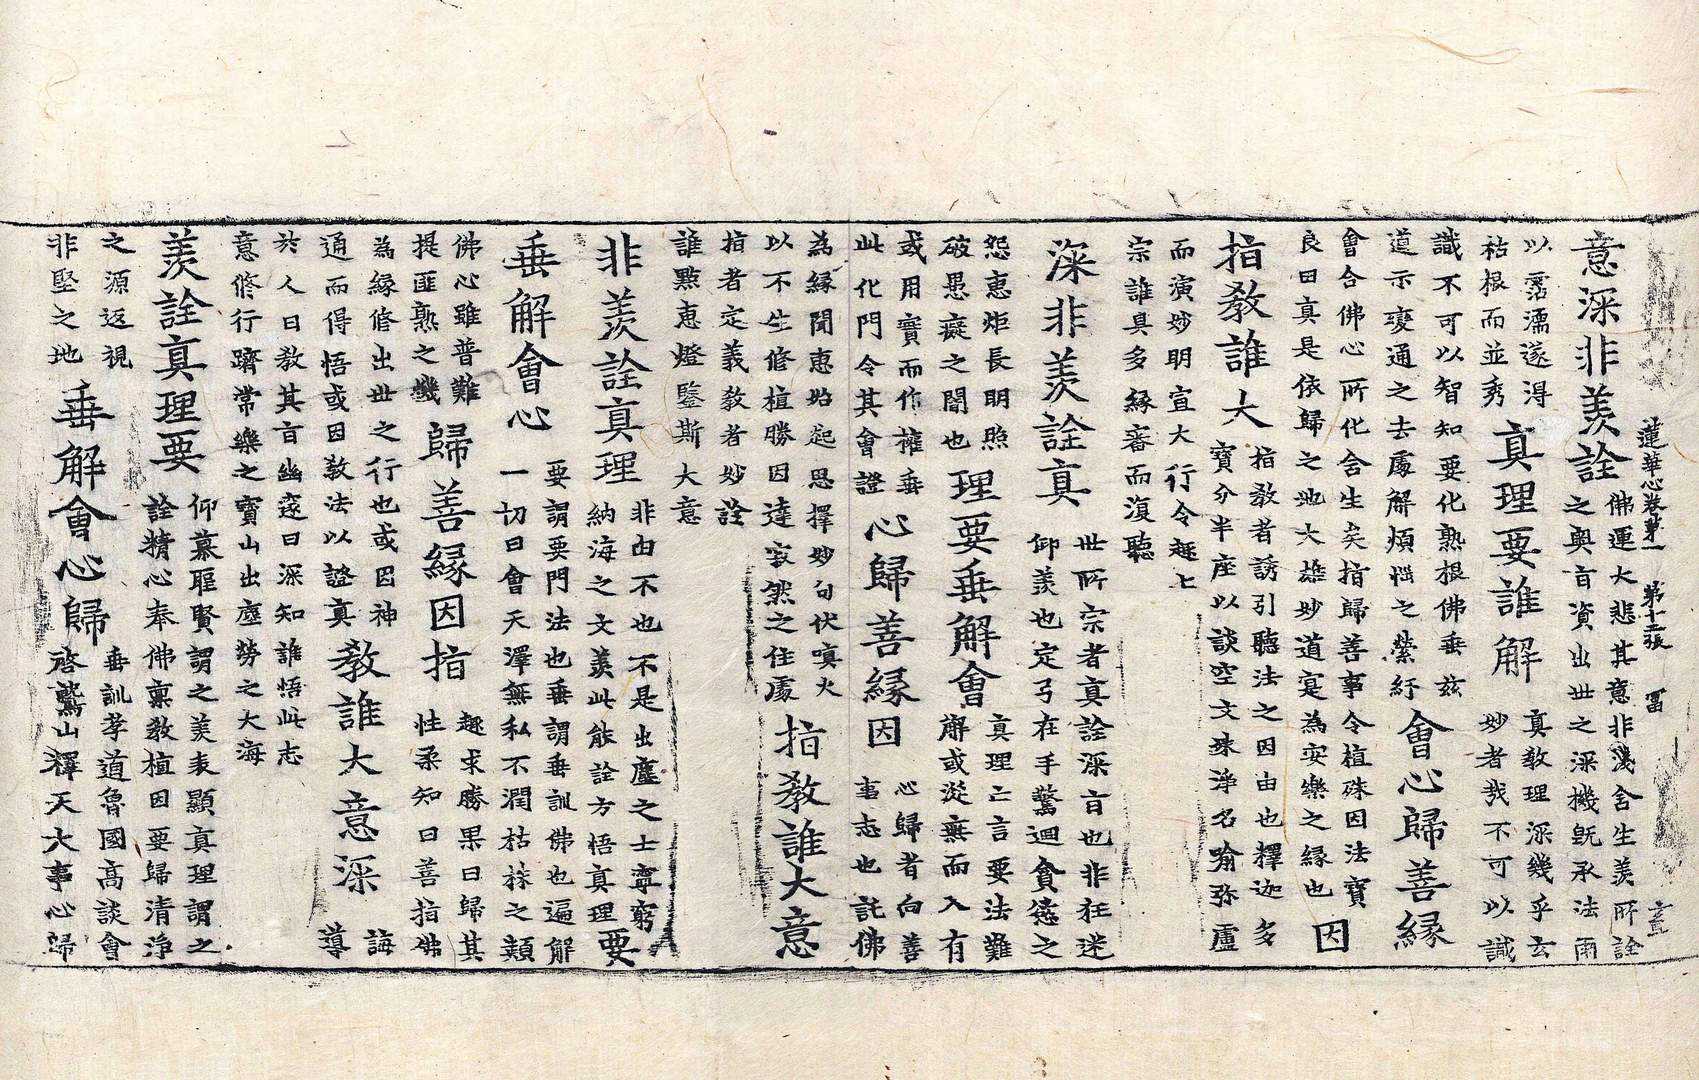 蓮華心卷第一
意深非羨詮
佛運大悲其意非淺含生羨所詮
之奧旨資出世之深機旣承法雨
以霑濡遂得
枯根而並秀
真理要誰解
真教理深幾乎玄
妙者我不可以識
識不可以智知要化熟根佛垂玆
道示變通之去處解煩惱之縈紆
會心歸善緣
會合佛心所化含生矣指歸善事令植殊因法寶
良田真是依歸之地大雄妙道寔為安樂之緣也
因
指教誰大
指教者誘引聽法之因由也釋迦多
寶分半座以談空文殊淨名喻弥盧
而演妙明宣大行令趣上
宗誰具多緣審而復聽
深非羨詮真
世所宗者真詮深旨也非狂迷
仰羨也定弓在手驚迴貪慾之
怨惠炬長明照
破愚癡之闇也
理要垂解會
真理亡言要法難
解或從無而入有
或用實而作權垂
此化門令其會證
心歸善緣因
心歸者向善
事志也託佛
為緣聞惠始起思擇妙句伏寞火
以不生修植勝因達寂然之住處
指教誰大意
指者定義教者妙詮
誰點惠燈鑒斯大意
非羨詮真理
非由不也不是出塵之士寧窮
納海之文羨此能詮方悟真理
要
垂解會心
要謂要門法也垂謂垂訓佛也遍解
一切曰會天澤無私不潤枯株之類
佛心雖普難
提匪熟之機
歸善緣因指
趣求勝果曰歸其
性柔知曰善指佛
為緣修出世之行也或因神
通而得悟或因教法以證真
教誰大意深
誨
導
於人曰教其旨幽邃曰深知誰悟此志
意修行躋常樂之寶山出塵勞之大海
羨詮真理要
仰慕聖賢謂之羨表顯真理謂之
詮精心奉佛稟教植因要歸清淨
之源返視
非堅之地
垂解會心歸
垂訓孝道魯國高談會
啓鷲山釋天大事心歸